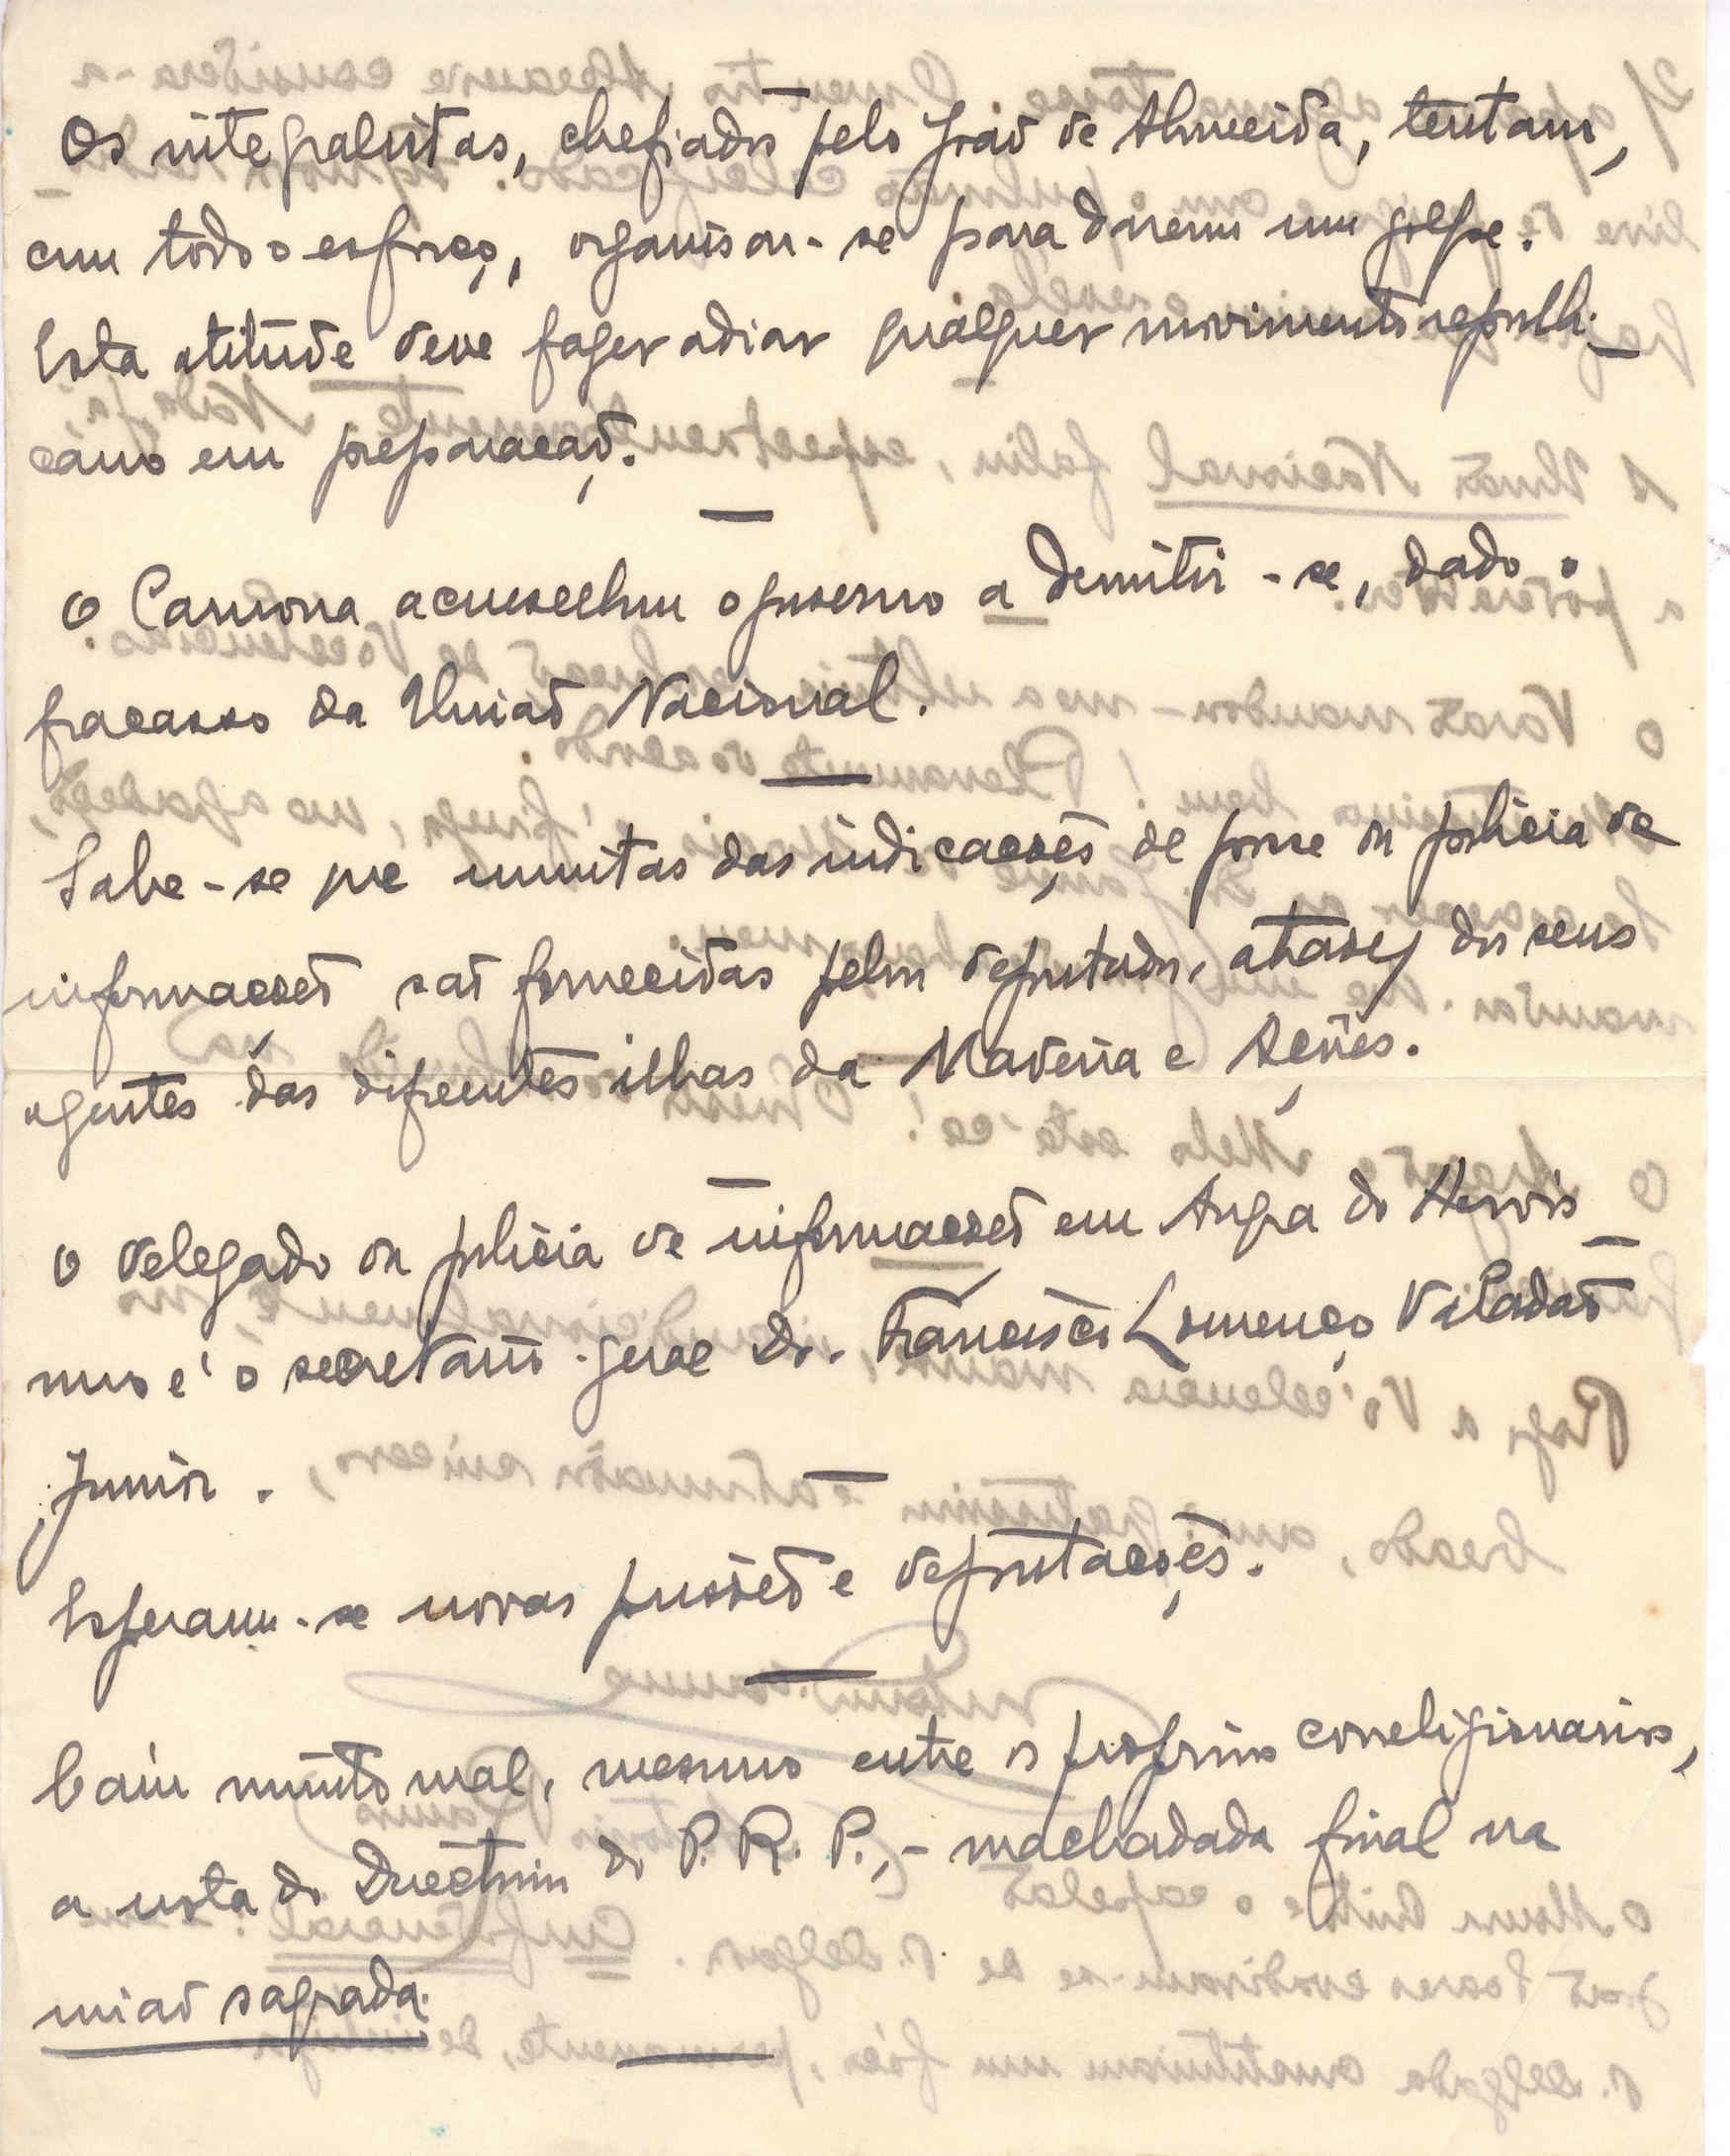 Os integralistas, chefiados pelo João de Almeida, tentam,
com todo o esforço, organisar-se para darem um golpe.
Esta atitude deve fazer adiar qualquer movimento republi-
cano em preparação.
O Carmona aconselhou o governo a demitir-se, dado o
fracasso da União Nacional.
Sabe-se que muitas das indicações de posse da policia de
informações são fornecidas pelos deportados, atravez dos seus
agentes das diferentes ilhas da Madeira e Açôres.
O delegado da policia de informações em Angra do Herois-
mo é o secretario-geral Dr. Francisco Lourenço Valadão
Junior.
Esperam-se novas prisões e deportações.
Caíu muito mal, mesmo entre os proprios correligionarios,
a nota do Directorio do P. R. P., - machadada final na
união sagrada.